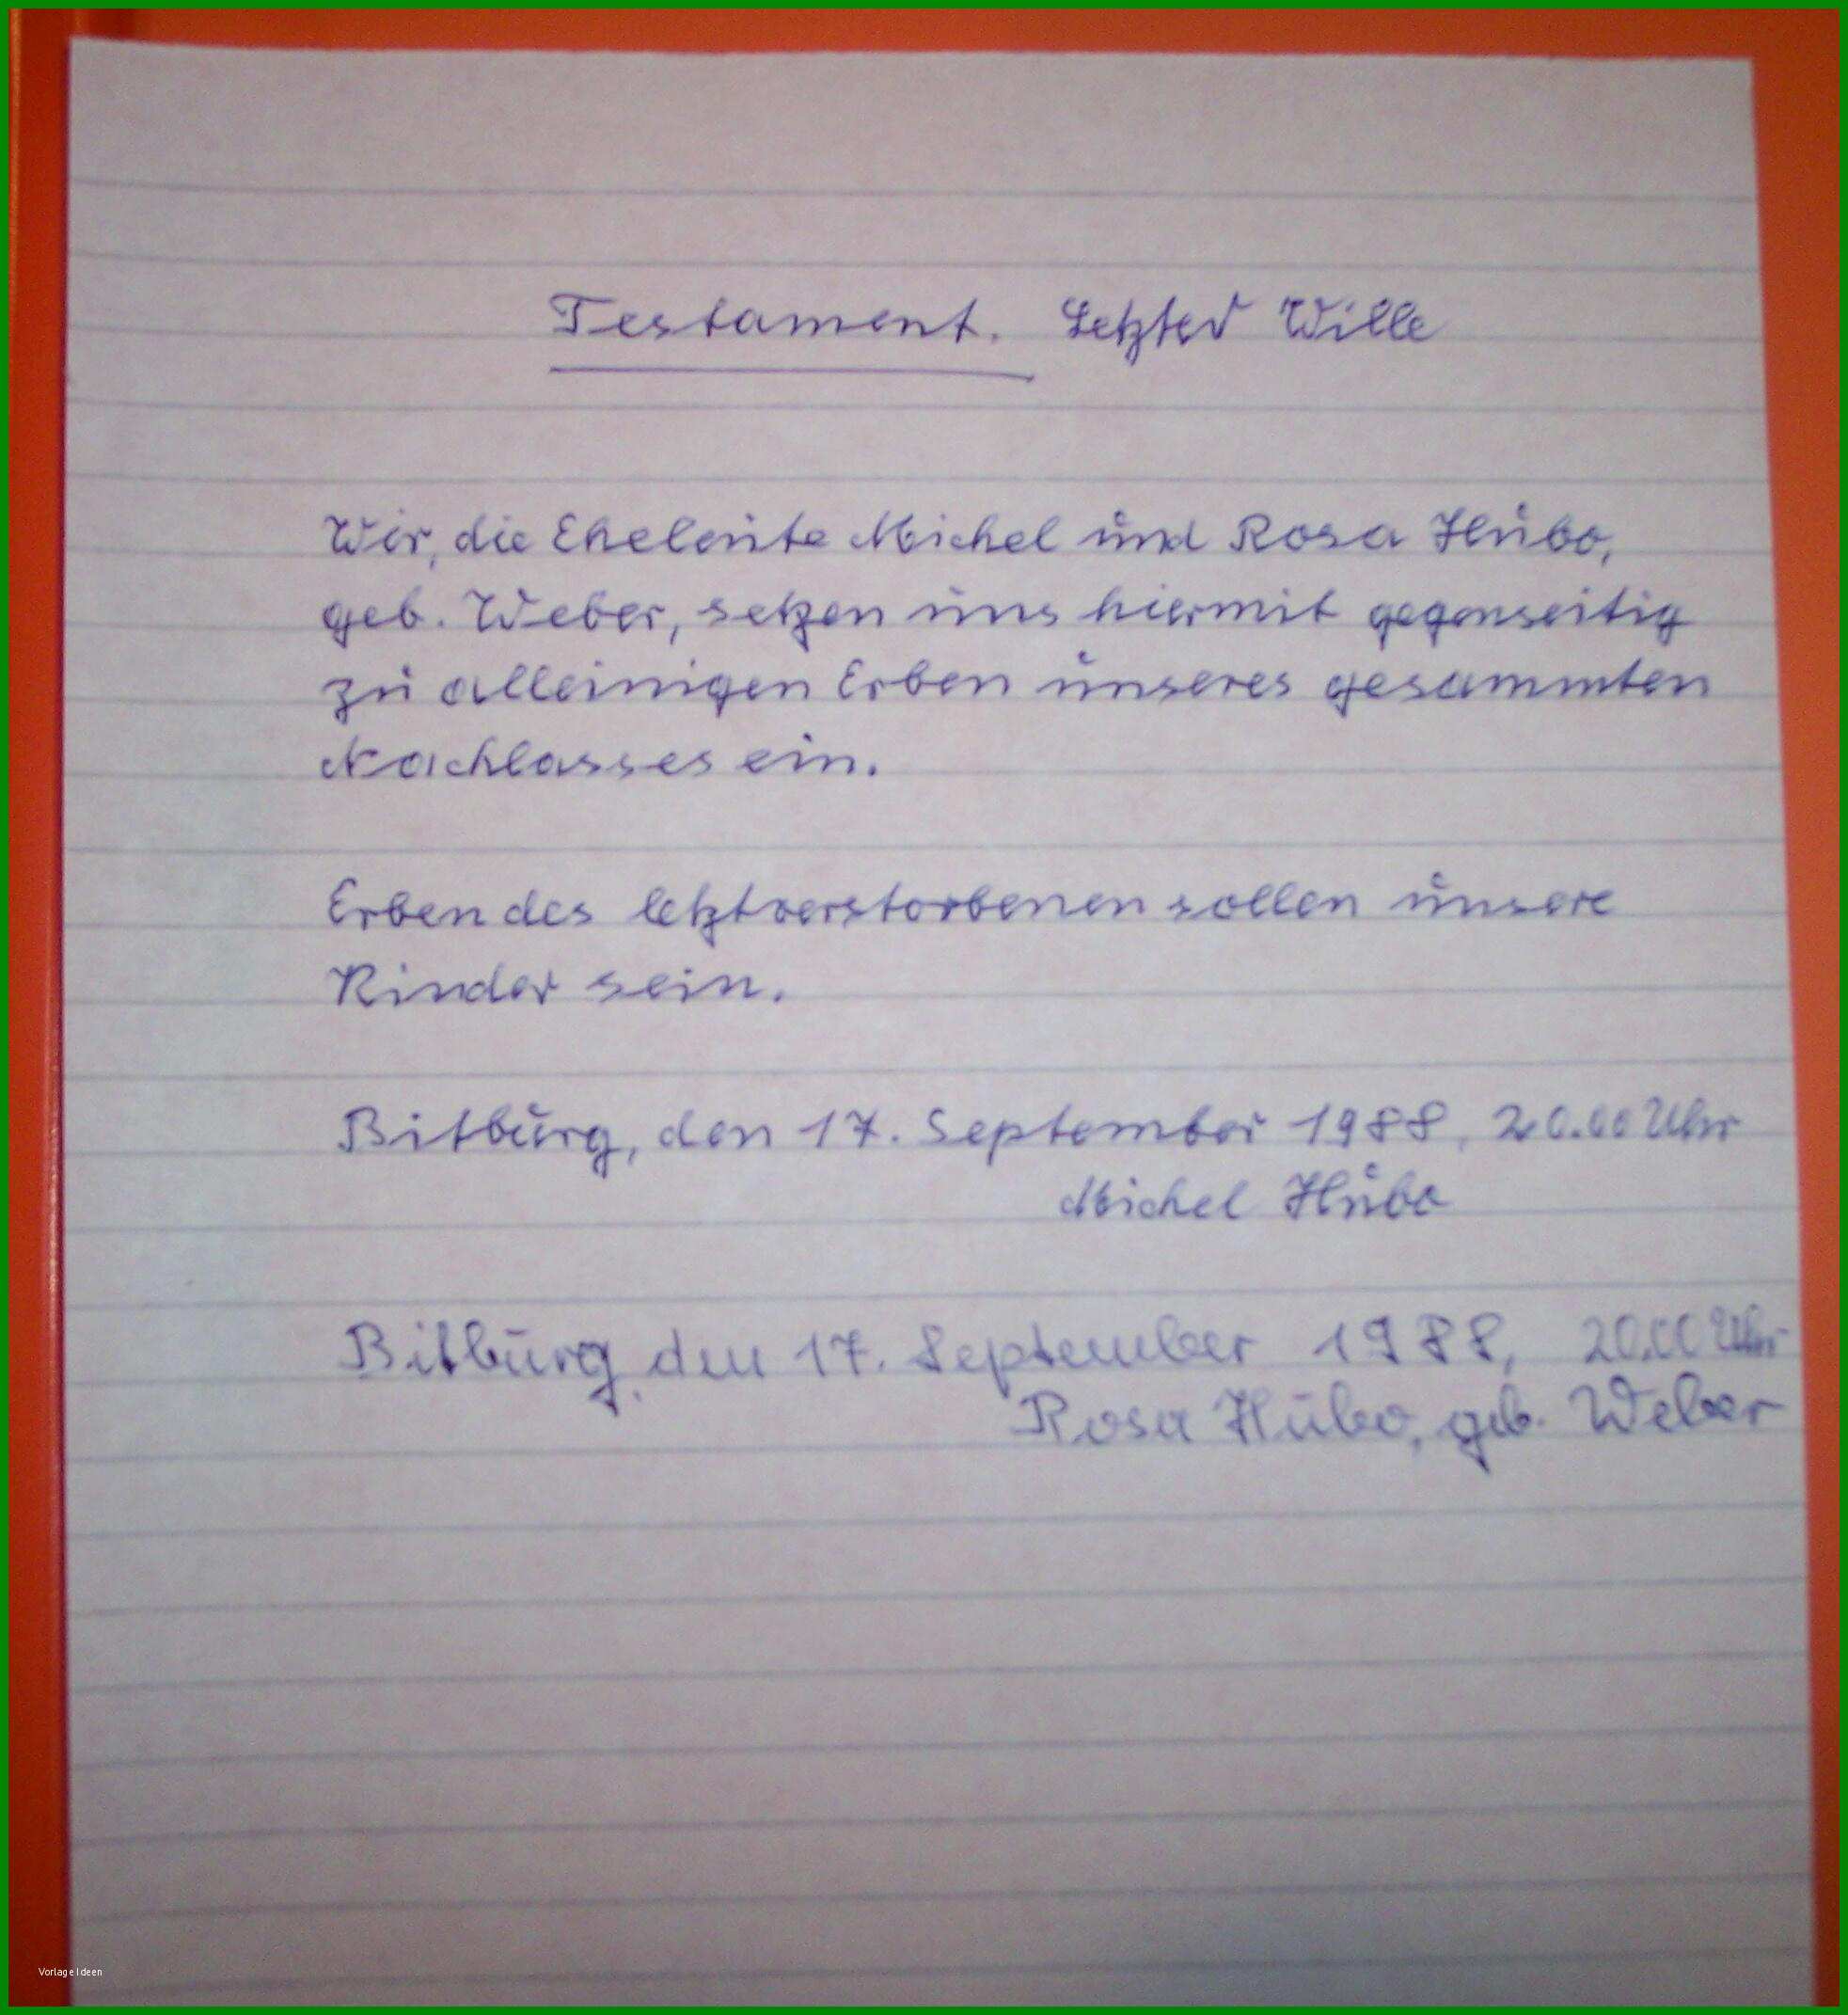 Testament. Letzter Wille
Wir, die Eheleute Michel und Rosa Hubo,
geb. Weber, setzen uns hiermit gegenseitig
zu alleinigen Erben unseres gesammten
Nachlasses ein.
Erben des letztverstorbenen sollen unsere
Kinder sein.
Bitburg, den 17. September 1988, 20.00 Uhr
Michel Hubo
Bitburg, den 17. September 1988, 20.00 Uhr
Rosa Hubo, geb. Weber
Vorlage Ideen